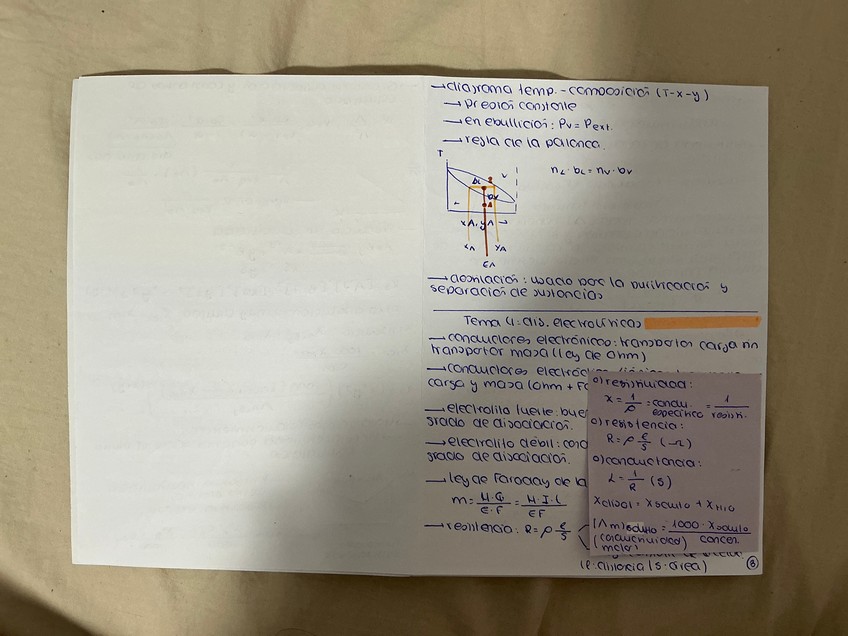 → diagrama temp. - composición (T-x-y)
→ presión constante
→ en ebullición: Pv = Pext.
→ regla de la palanca.
T
nL · bL = nV · bV
bL
V
bV
A
L
xA, yA →
xA
yA
εA
→ destilación: usado por la purificación y
separación de sustancias
Tema 4: dis. electrolíticas
→ conductores electrónicos: transportan carga sin
transportar masa (ley de ohm)
→ conductores
carga y masa (ohm +
→ electrolito fuerte: buen
grado de disociación.
→ electrolito débil:
grado de disociación.
→ ley de Faraday de la
m = M·Q / E·F = M·I·t / E·F
→ resistencia: R = ρ ℓ/S
o) resistividad:
χ = 1/ρ = condu. específica = 1/resisti.
o) resistencia:
R = ρ ℓ/S (Ω)
o) conductancia:
L = 1/R (S)
χ disol = χ soluto + χ H2O
(Λm) soluto = 1000 · χ soluto / concen.
(conductividad
molar)
(ℓ: distancia / S: área)
8